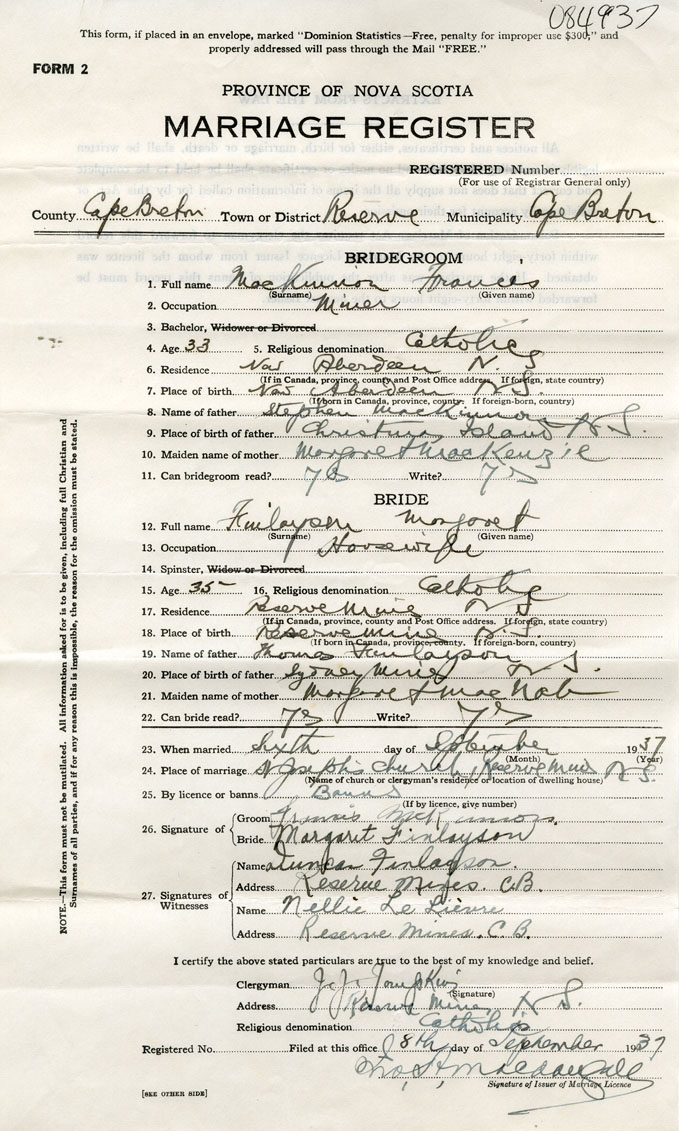 084937
This form, if placed in an envelope, marked "Dominion Statistics—Free, penalty for improper use $300," and
properly addressed will pass through the Mail "FREE."
FORM 2
PROVINCE OF NOVA SCOTIA
MARRIAGE REGISTER
REGISTERED Number
(For use of Registrar General only)
County Cape Breton Town or District Reserve Municipality Cape Breton
BRIDEGROOM
1. Full name MacKinnon Frances
(Surname) (Given name)
2. Occupation Miner
3. Bachelor, Widower or Divorced
4. Age 33 5. Religious denomination Catholic
6. Residence New Aberdeen N. S
(If in Canada, province, county and Post Office address. If foreign, state country)
7. Place of birth New Aberdeen N.S.
(If born in Canada, province, county. If foreign-born, country)
8. Name of father Stephen MacKinnon
9. Place of birth of father Christmas Island N.S.
10. Maiden name of mother Margaret MacKenzie
11. Can bridegroom read? Yes Write? Yes
BRIDE
12. Full name Finlayson Margaret
(Surname) (Given name)
13. Occupation Housewife
14. Spinster, Widow or Divorced
15. Age 35 16. Religious denomination Catholic
17. Residence Reserve Mines N S
(If in Canada, province, county and Post Office address. If foreign, state country)
18. Place of birth Reserve Mines N.S.
(If born in Canada, province, county. If foreign-born, country)
19. Name of father Thomas Finlayson
20. Place of birth of father Sydney Mines N S.
21. Maiden name of mother Margaret MacNab
22. Can bride read? Yes Write? Yes
23. When married Sixth day of September 1937
(Month) (Year)
24. Place of marriage St Joseph's Church, Reserve Mines N S.
(Name of church or clergyman's residence or location of dwelling house)
25. By licence or banns Banns
(If by licence, give number)
26. Signature of
Groom Francis McKinnon
Bride Margaret Finlayson
27. Signatures of Witnesses
Name Duncan Finlayson.
Address Reserve Mines. C.B.
Name Nellie Le Lievre
Address Reserve Mines. C.B.
I certify the above stated particulars are true to the best of my knowledge and belief.
Clergyman J. J. Tompkins
(Signature)
Address Reserve Mines N S.
Religious denomination Catholic
Registered No. Filed at this office 8th day of September 1937
MacDougall
Signature of Issuer of Marriage Licence
[SEE OTHER SIDE]
NOTE.—This form must not be mutilated. All information asked for is to be given, including full Christian and
Surnames of all parties, and if for any reason this is impossible, the reason for the omission must be stated.